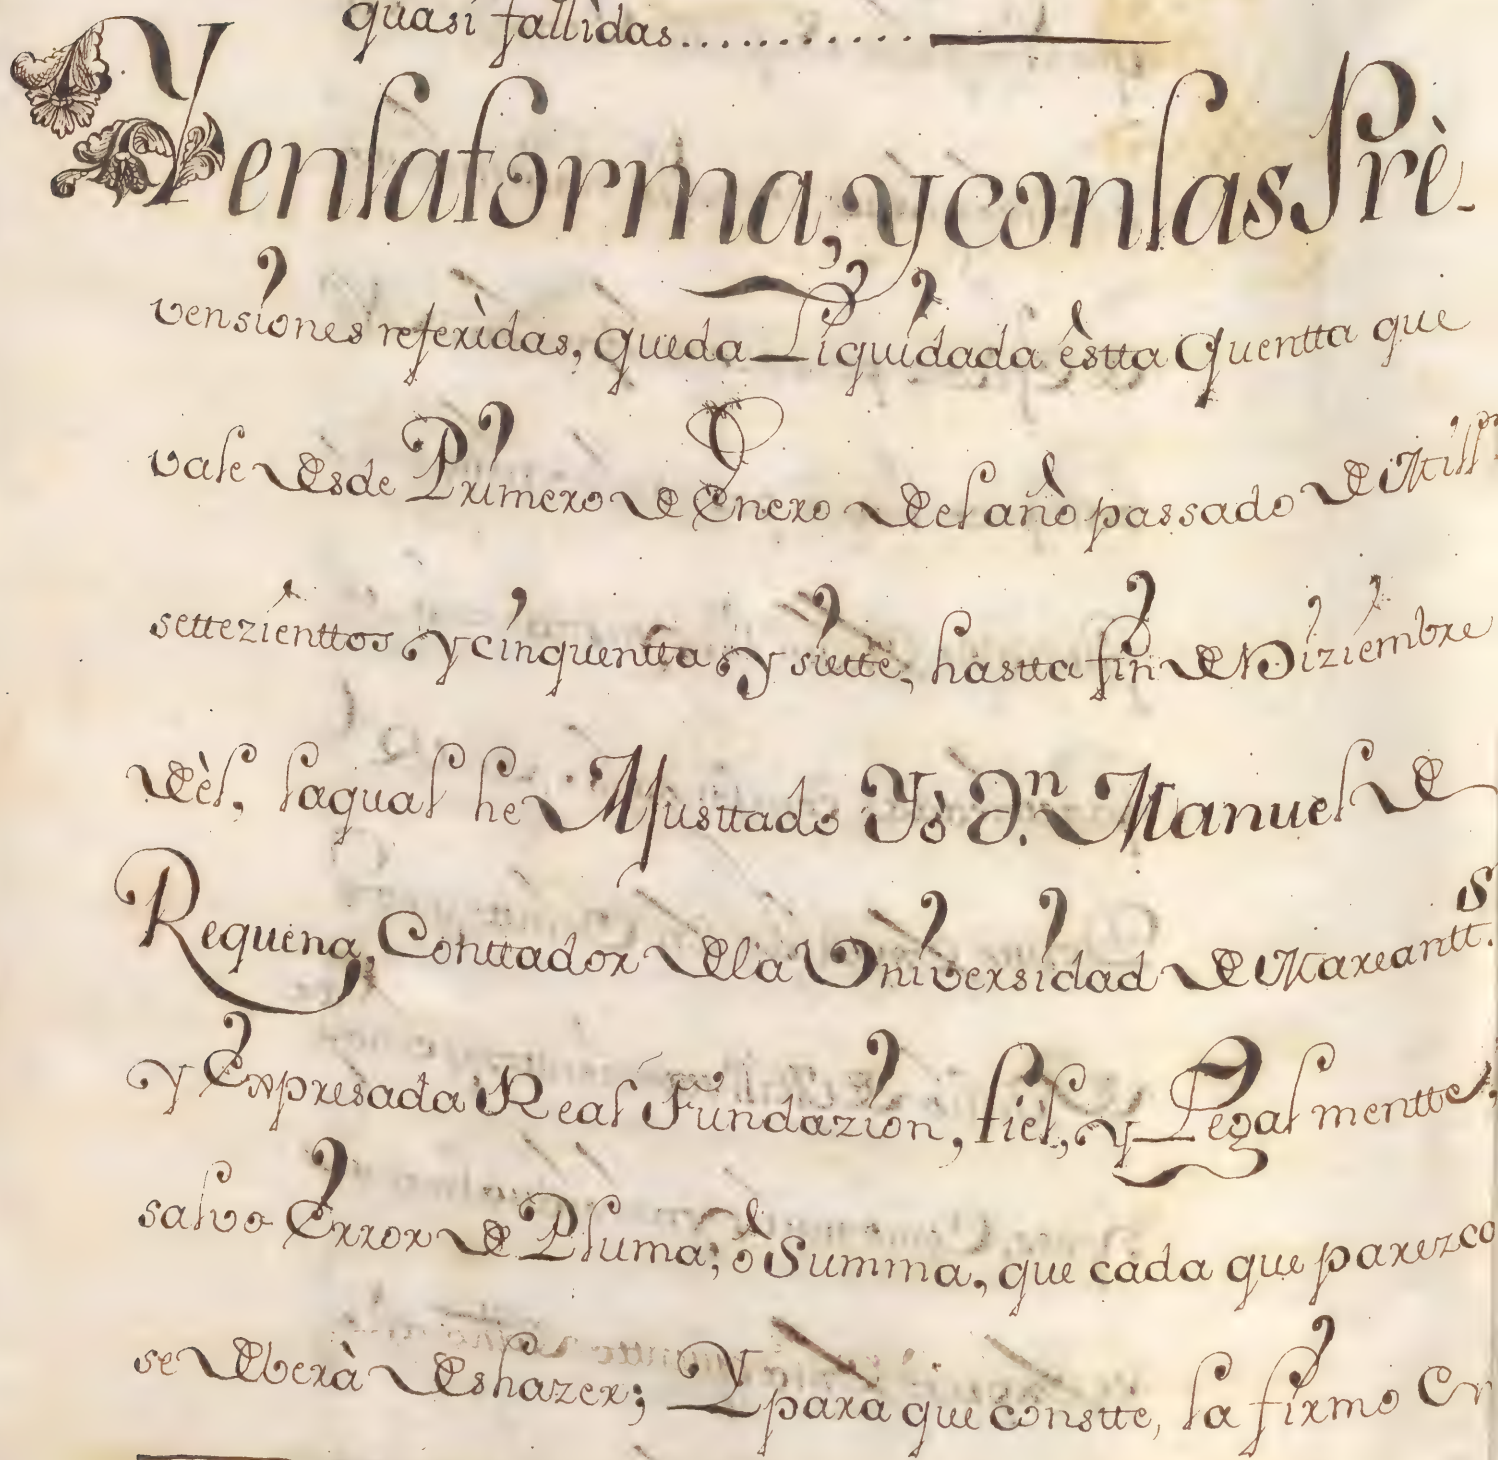 quasi fallidas............
Y en la forma, y con las Prè-
vensiones referìdas, queda Liquidada èstta Quentta que
vale desde Primero de Enero del año passado de Mill
settezienttos y cinquentta y siette, hastta fin de Diziembre
de èl, la qual he Ajusttado Yò D.n Manuel de
Requena, Conttador de la Universidad de Mareantt.s
y Expresada Real Fundazion, fiel, y Legal mentte,
salvo Error de Pluma, ò Summa, que cada que parezco
se deberà deshazer; Y para que constte, la firmo en